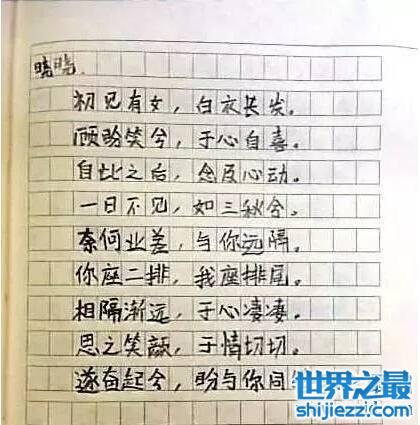 晓晓.
初见有女，白衣长发。
顾盼笑兮，于心自喜。
自此之后，念及心动。
一日不见，如三秋兮。
奈何业差，与你远隔。
你座二排，我座排尾。
相隔渐远，于心凄凄。
思之笑颜，于情切切。
遂奋起兮，盼与你同
世界之最
shijiezz.com